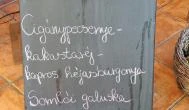 Cigánypecsenye-
Kakastaréj-
Kapros héjasburgonya
Somlói galuska